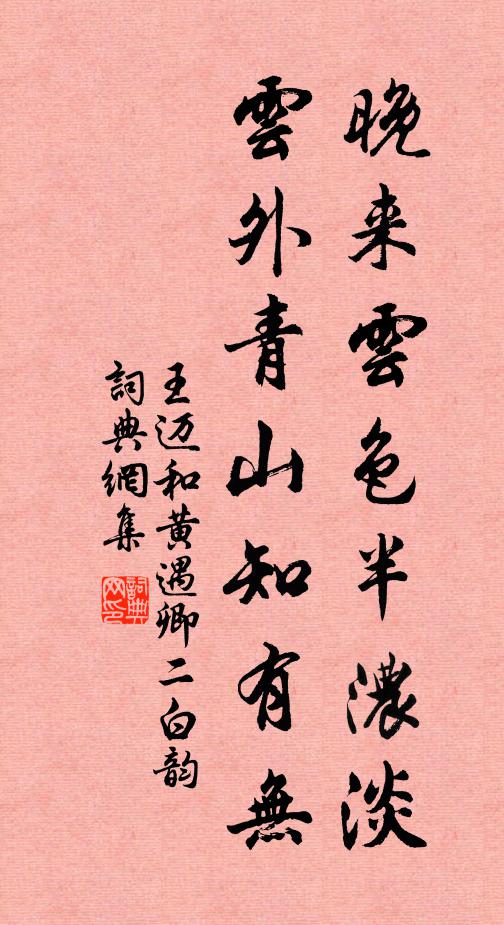 晚来雲色半濃淡
雲外青山知有無
王迈和黄遇卿二白韵
詞典網集
詞典网印